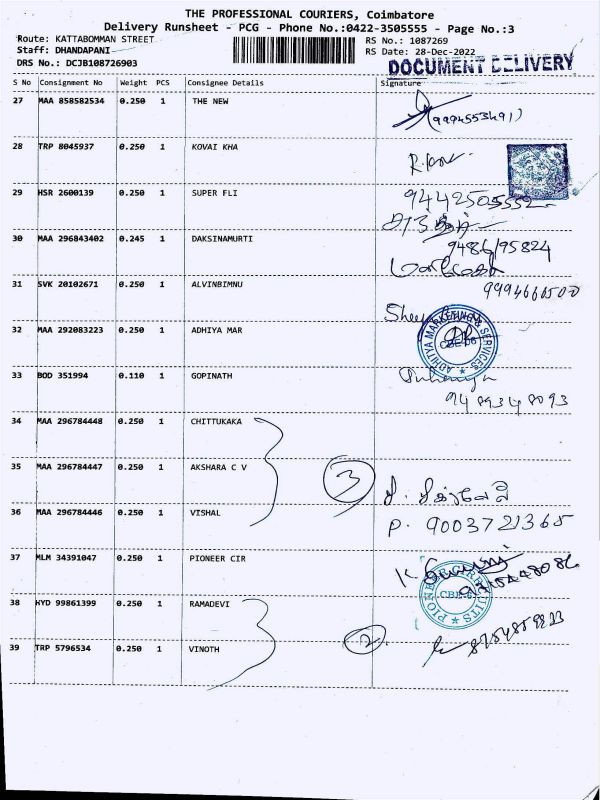 THE PROFESSIONAL COURIERS, Coimbatore
Delivery Runsheet - PCG - Phone No.:0422-3505555 - Page No.:3
Route: KATTABOMMAN STREET RS No.: 1087269
Staff: DHANDAPANI RS Date: 28-Dec-2022
DRS No.: DCJB108726903 DOCUMENT DELIVERY
S No Consignment No Weight PCS Consignee Details Signature
27 MAA 858582534 0.250 1 THE NEW
(9994553491)
28 TRP 8045937 0.250 1 KOVAI KHA
29 HSR 2600139 0.250 1 SUPER FLI
9442505552
30 MAA 296843402 0.245 1 DAKSINAMURTI
9486195824
31 SVK 20102671 0.250 1 ALVINBIMNU
32 MAA 292083223 0.250 1 ADHIYA MAR
ADHITYA MARKETING & SERVICES
33 BOD 351994 0.110 1 GOPINATH
9489348093
34 MAA 296784448 0.250 1 CHITTUKAKA
35 MAA 296784447 0.250 1 AKSHARA C V
3
36 MAA 296784446 0.250 1 VISHAL
P. 9003721365
37 MLM 34391047 0.250 1 PIONEER CIR
PIONEER CIRCUITS
CBE-6
38 HYD 99861399 0.250 1 RAMADEVI
39 TRP 5796534 0.250 1 VINOTH
2